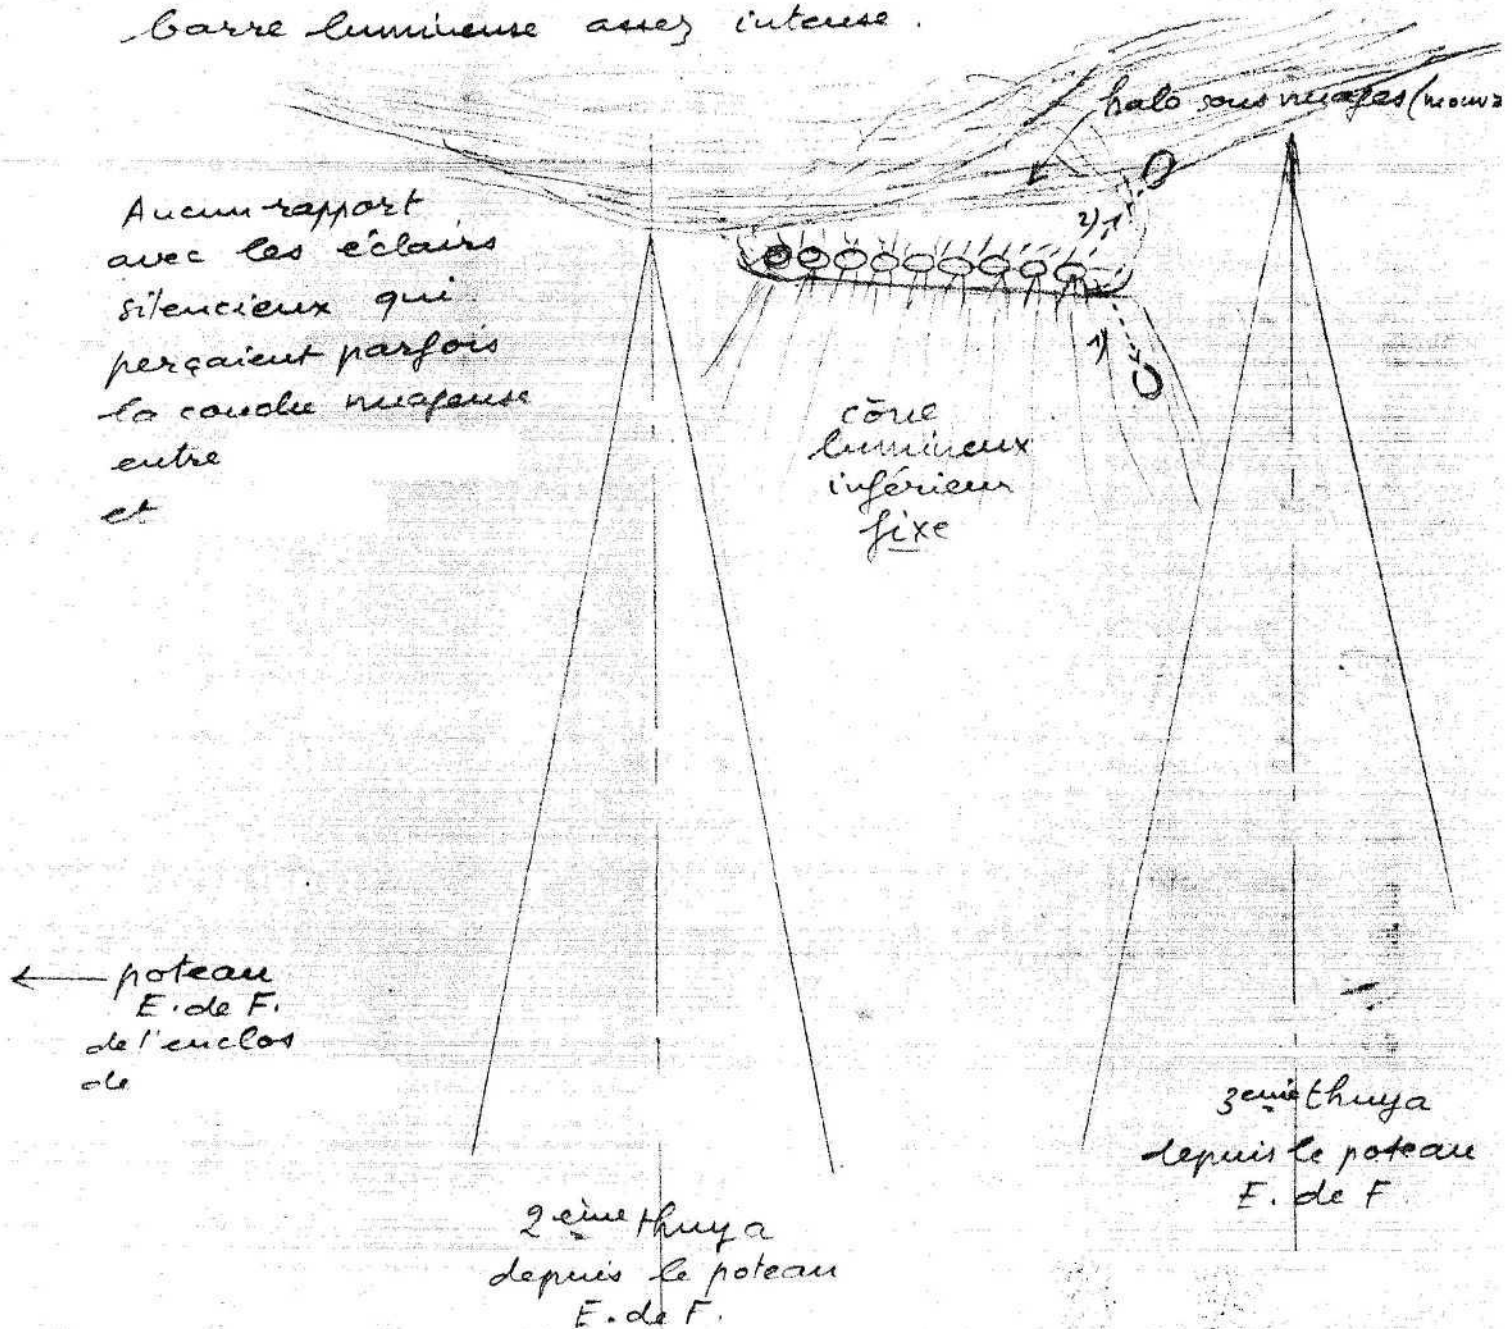 barre lumineuse assez intense.
halo sous nuages (mouv
Aucun rapport
avec les éclairs
silencieux qui
perçaient parfois
la couche nuageuse
entre
et
2)
1)
cône
lumineux
inférieur
fixe
← poteau
E. de F.
de l'enclos
de
3ème thuya
depuis le poteau
E. de F.
2ème thuya
depuis le poteau
E. de F.